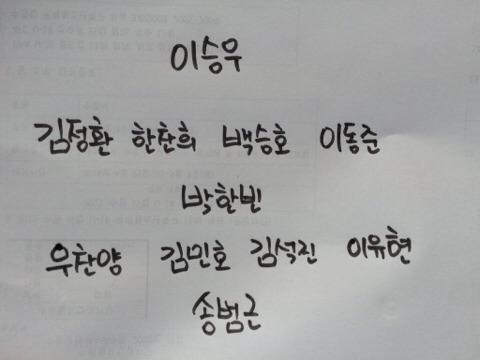 이승우
김정환 한찬희 백승호 이동준
박한빈
우찬양 김민호 김석진 이유현
송범근